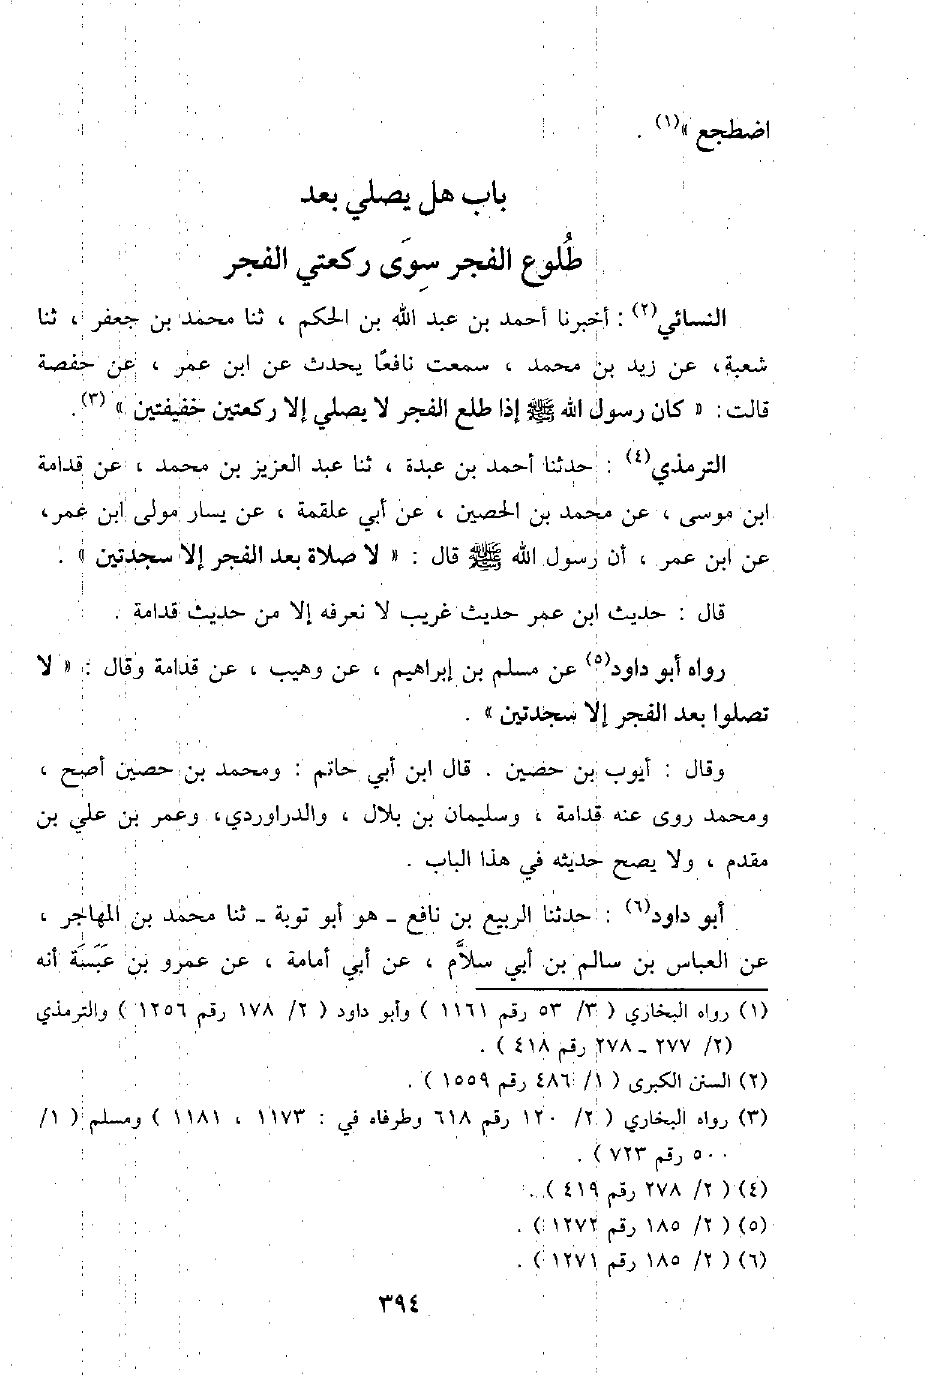 اضطجع »(١) .
باب هل يصلي بعد
طُلوع الفجر سِوَى ركعتي الفجر
النسائي(٢) : أخبرنا أحمد بن عبد الله بن الحكم ، ثنا محمد بن جعفر ، ثنا
شعبة، عن زيد بن محمد ، سمعت نافعًا يحدث عن ابن عمر ، عن حفصة
قالت: « كان رسول الله ﷺ إذا طلع الفجر لا يصلي إلا ركعتين خفيفتين » (٣).
الترمذي(٤) : حدثنا أحمد بن عبدة ، ثنا عبد العزيز بن محمد ، عن قدامة
ابن موسى ، عن محمد بن الحصين ، عن أبي علقمة ، عن يسار مولى ابن عمر،
عن ابن عمر ، أن رسول الله ﷺ قال : « لا صلاة بعد الفجر إلا سجدتين » .
قال : حديث ابن عمر حديث غريب لا نعرفه إلا من حديث قدامة .
رواه أبو داود(٥) عن مسلم بن إبراهيم ، عن وهيب ، عن قدامة وقال : « لا
تصلوا بعد الفجر إلا سجدتين » .
وقال : أيوب بن حصين . قال ابن أبي حاتم : ومحمد بن حصين أصح ،
ومحمد روى عنه قدامة ، وسليمان بن بلال ، والدراوردي، وعمر بن علي بن
مقدم ، ولا يصح حديثه في هذا الباب .
أبو داود(٦) : حدثنا الربيع بن نافع ـ هو أبو توبة ـ ثنا محمد بن المهاجر ،
عن العباس بن سالم بن أبي سلاَّم ، عن أبي أمامة ، عن عمرو بن عَبَسَة أنه
(١) رواه البخاري ( ٣/ ٥٣ رقم ١١٦١ ) وأبو داود ( ٢/ ١٧٨ رقم ١٢٥٦ ) والترمذي
(٢/ ٢٧٧ ـ ٢٧٨ رقم ٤١٨ ) .
(٢) السنن الكبرى ( ١/ ٤٨٦ رقم ١٥٥٩ ) .
(٣) رواه البخاري ( ٢/ ١٢٠ رقم ٦١٨ وطرفاه في : ١١٧٣ ، ١١٨١ ) ومسلم ( ١/
٥٠٠ رقم ٧٢٣ ) .
(٤) ( ٢/ ٢٧٨ رقم ٤١٩ ) .
(٥) ( ٢/ ١٨٥ رقم ١٢٧٢ ) .
(٦) ( ٢/ ١٨٥ رقم ١٢٧١ ) .
٣٩٤